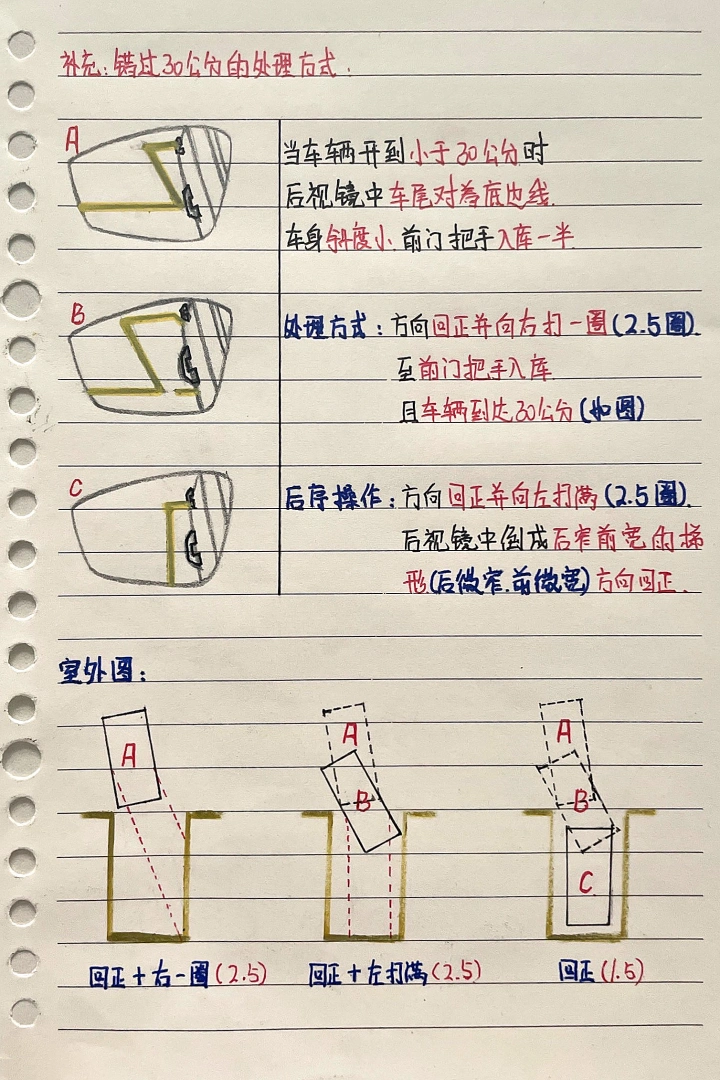 补充:错过30公分的处理方式.
A
当车辆开到小于30公分时
后视镜中车尾对着底边线.
车身斜度小.前门把手入库一半.
B
处理方式:方向回正并向右打一圈(2.5圈).
至前门把手入库.
且车辆到达30公分(如图)
C
后序操作:方向回正并向左打满(2.5圈).
后视镜中倒成后窄前宽的梯
形(后微窄.前微宽)方向回正.
室外图:
A
A
A
B
B
C
回正+右一圈(2.5)
回正+左打满(2.5)
回正(1.5)